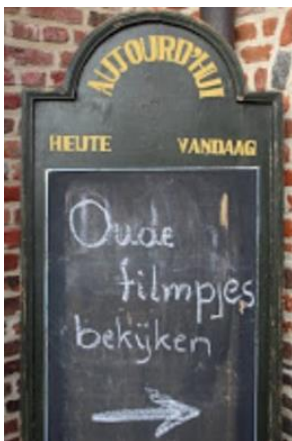 AUJOURD'HUI
HEUTE VANDAAG
Oude
filmpjes
bekijken